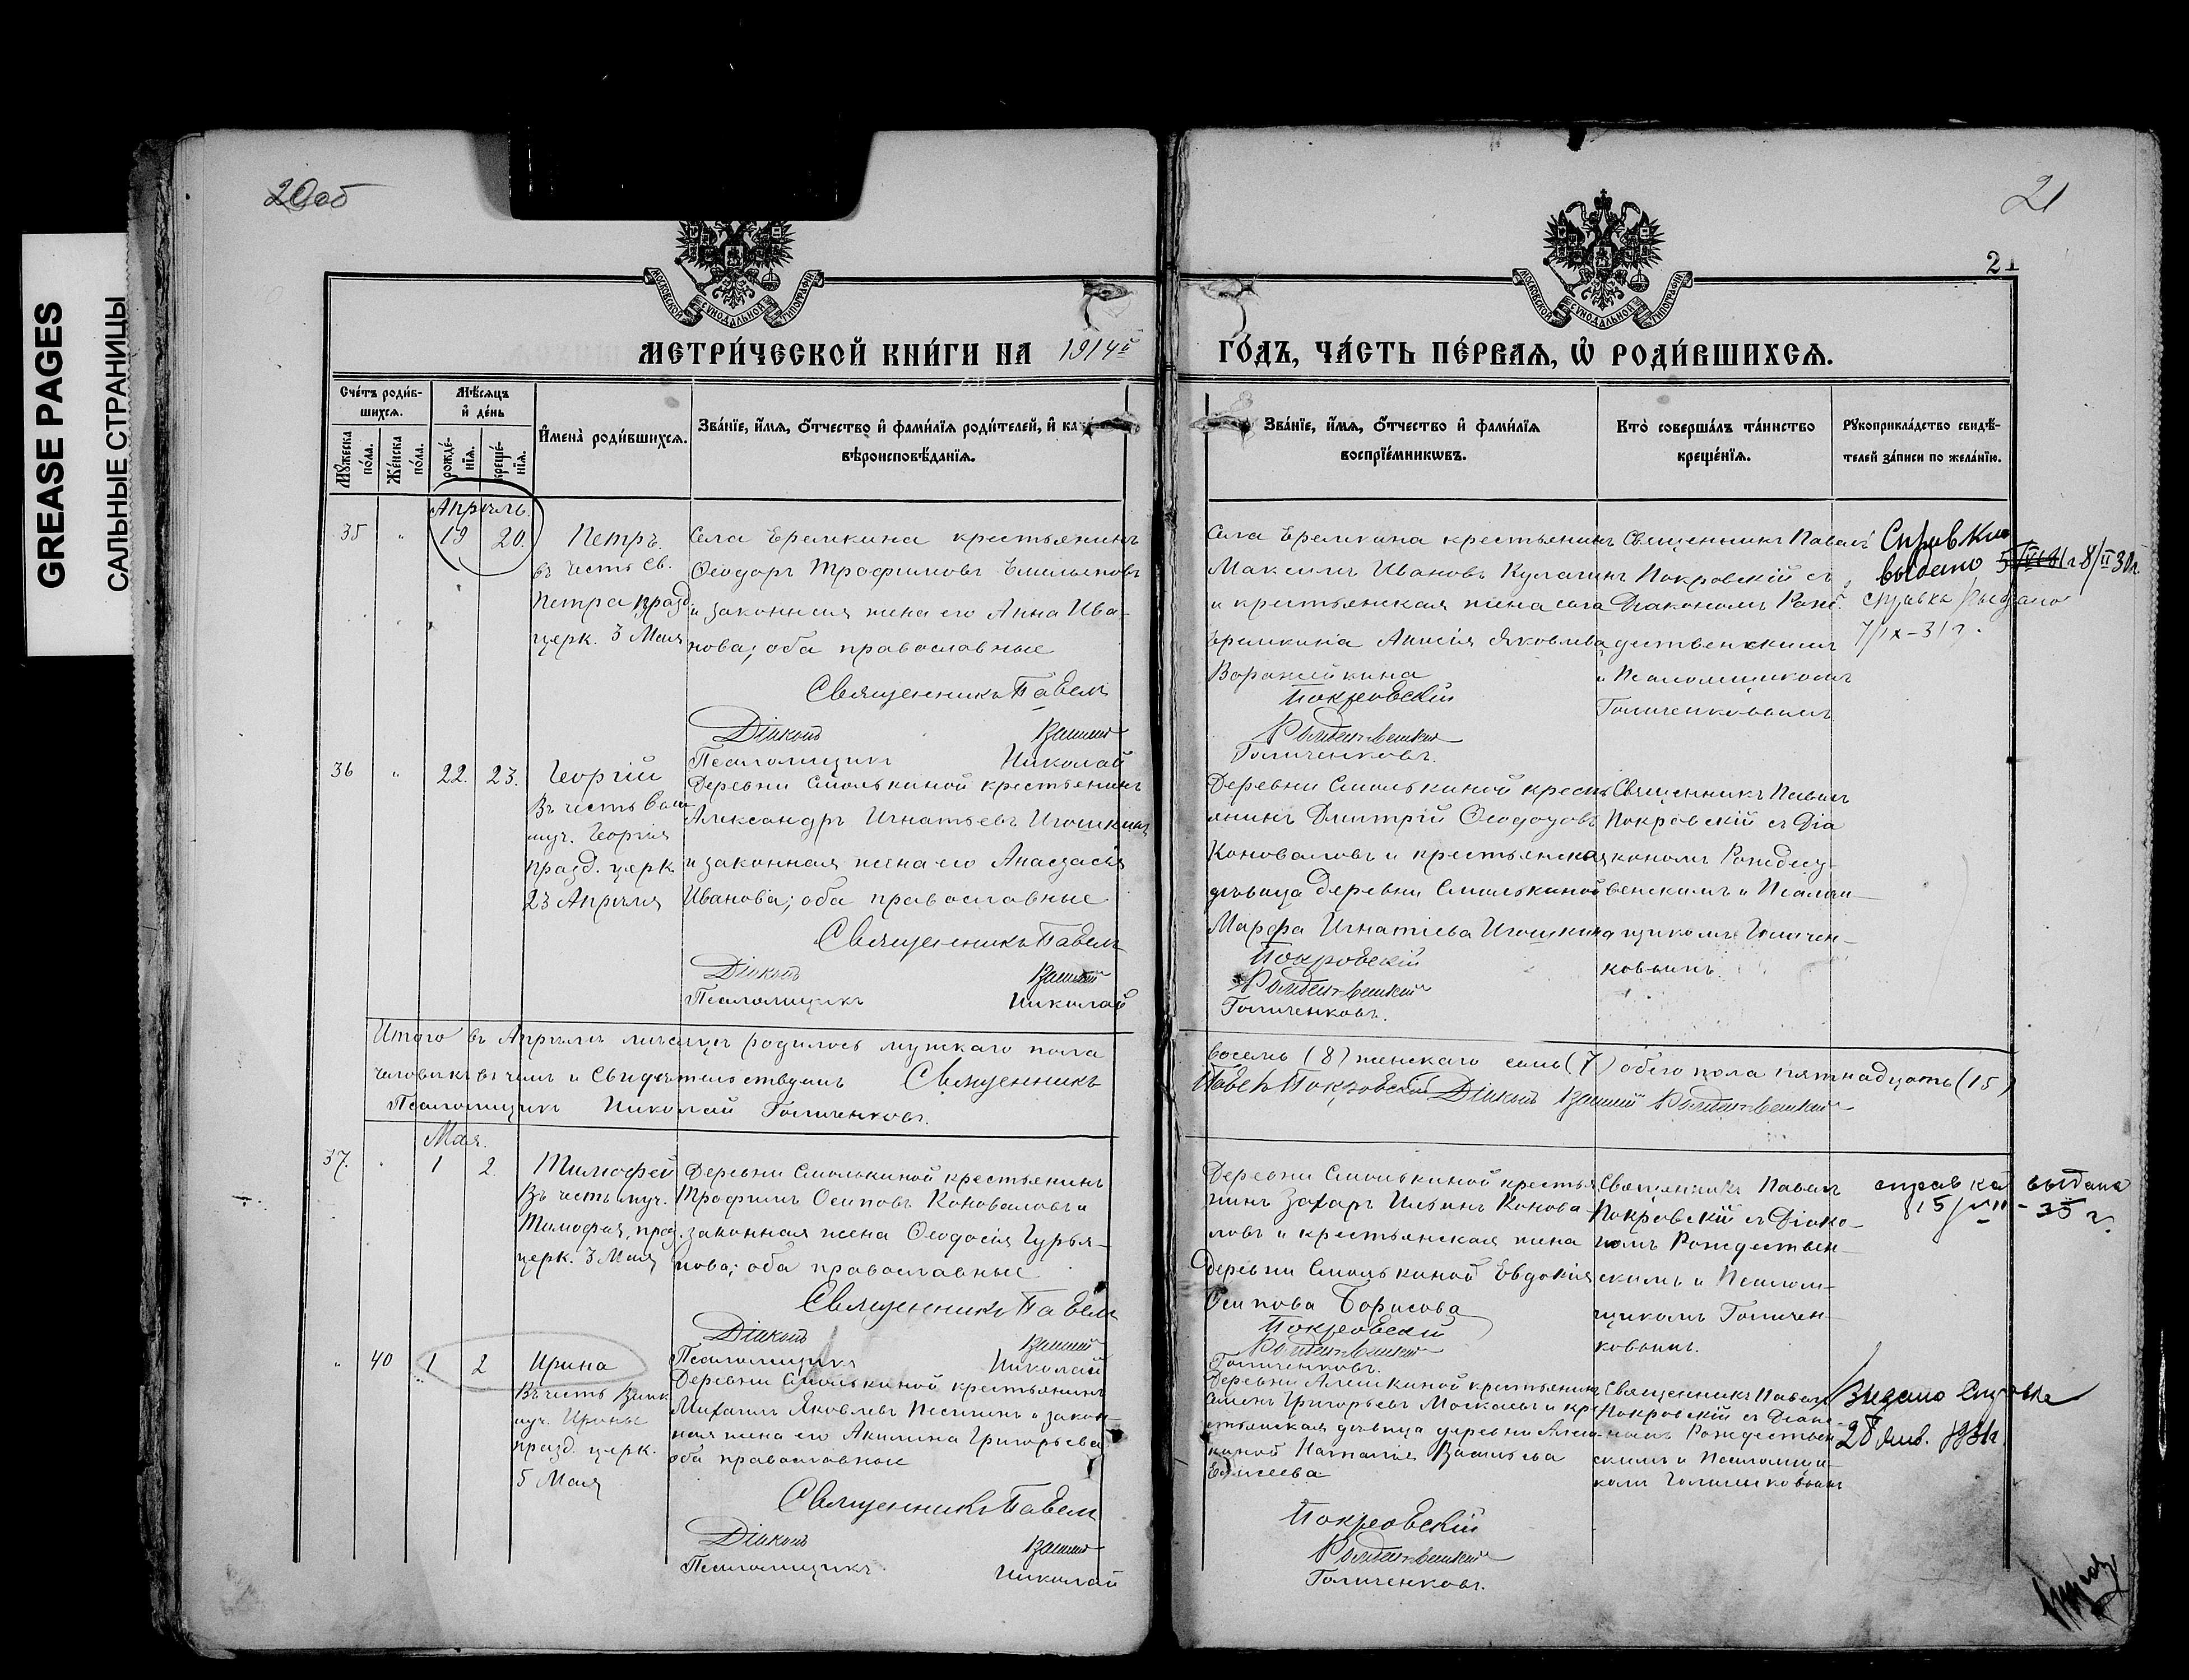 GREASE PAGES
САЛЬНЫЕ СТРАНИЦЫ
20об
21
21
МОСКОВСКОЙ СѴНОДАЛЬНОЙ ТИПОГРАФІИ
МОСКОВСКОЙ СѴНОДАЛЬНОЙ ТИПОГРАФІИ
МЕТРИ́ЧЕСКОЙ КНИ́ГИ НА 1914й
ГО́ДЪ, ЧА́СТЬ ПЕ́РВАѦ, Ѡ҆ РОДИ́ВШИХСѦ.
Сче́тъ роди́в-
шихсѧ.
Мꙋ́жеска по́ла.
Же́нска по́ла.
Мѣ́сѧцъ
и҆ де́нь
рожде́-
нїѧ.
креще́-
нїѧ.
И҆мена̀ роди́вшихсѧ.
Зва́нїе, и҆́мѧ, ѻ҆́тчество и҆ фами́лїѧ роди́телей, и҆ ка
вѣроисповѣ́данїѧ.
Зва́нїе, и҆́мѧ, ѻ҆́тчество и҆ фами́лїѧ
воспрїе́мникѡвъ.
Кто̀ соверша́лъ та́инство
креще́нїѧ.
Рꙋкоприкла́дство свидѣ́-
телей за́писи по жела́нїю.
Апрѣль.
35 " 19 20.
Петръ.
въ честь Св.
Петра празд.
церк. 3 Мая
Села Еремкина крестьянинъ
Ѳеодоръ Трофимовъ Емельяновъ
и законная жена его Анна Ива-
нова; оба православные
Священникъ Павелъ
Діаконъ
Псаломщикъ Николай
Села Еремкина крестьянинъ
Максимъ Ивановъ Кулагинъ
и крестьянская жена села
Еремкина Анисія Яковлева
Ворожейкина
Покровскій
Рождественскій
Голиченковъ.
Священникъ Павелъ
Покровскій съ
Діакономъ Рож-
дественскимъ
и Псаломщикомъ
Голиченковымъ.
Справка
выдано 8/II 31г.
справка выдана
7/IX-31г.
36 " 22. 23.
Георгій
Въ честь Вел.
муч. Георгія
празд. церк.
23 Апрѣля
Деревни Смолькиной крестьянинъ
Александръ Игнатьевъ Игошкинъ
и законная жена его Анастасія
Иванова; оба православные
Священникъ Павелъ
Діаконъ
Псаломщикъ Николай
Деревни Смолькиной кресть
янинъ Дмитрій Ѳеодоровъ
Коноваловъ и крестьянская
дѣвица деревни Смолькиной
Марѳа Игнатіева Игошкина
Покровскій
Рождественскій
Голиченковъ.
Священникъ Павелъ
Покровскій съ Діа
кономъ Рождест-
венскимъ и Псалом-
щикомъ Голичен-
ковымъ.
Итого въ Апрѣлѣ мѣсяцѣ родилось мужкаго пола
восемь (8) женскаго семь (7) обоего пола пятнадцать (15)
человѣкъ въ чемъ и свидѣтельствуемъ Священникъ
Павелъ Покровскій Діаконъ Рождественскій
Псаломщикъ Николай Голиченковъ.
Мая.
37. " 1 2.
Тимоѳей
Въ честь муч.
Тимоѳея, празд.
церк. 3 Мая
Деревни Смолькиной крестьянинъ
Трофимъ Осиповъ Коноваловъ и
законная жена Ѳеодосія Гурья-
нова; оба православные
Священникъ Павелъ
Діаконъ
Псаломщикъ Николай
Деревни Смолькиной крестья
нинъ Захаръ Ильинъ Конова-
ловъ и крестьянская жена
деревни Смолькиной Евдокія
Осипова Борисова
Покровскій
Рождественскій
Голиченковъ.
Священникъ Павелъ
Покровскій съ Діако-
номъ Рождествен-
скимъ и Псалом-
щикомъ Голичен-
ковымъ.
справка выдана
15/VII-35г.
" 40 1 2
Ирина
Въ честь Велик.
муч. Ирины
празд. церк.
5 Мая
Деревни Смолькиной крестьянинъ
Михаилъ Яковлевъ и закон-
ная жена его Акилина Григорьева
оба православные
Священникъ Павелъ
Діаконъ
Псаломщикъ Николай
Деревни Алешкиной крестьянинъ
Григорьевъ и кре-
стьянская дѣвица деревни Алеш-
киной Наталія Васильева
Елисеева
Покровскій
Рождественскій
Голиченковъ.
Священникъ Павелъ
Покровскій съ Діако-
номъ Рождествен-
скимъ и Псаломщи-
комъ Голиченковымъ
Выдано справка
28 янв. 1931г.